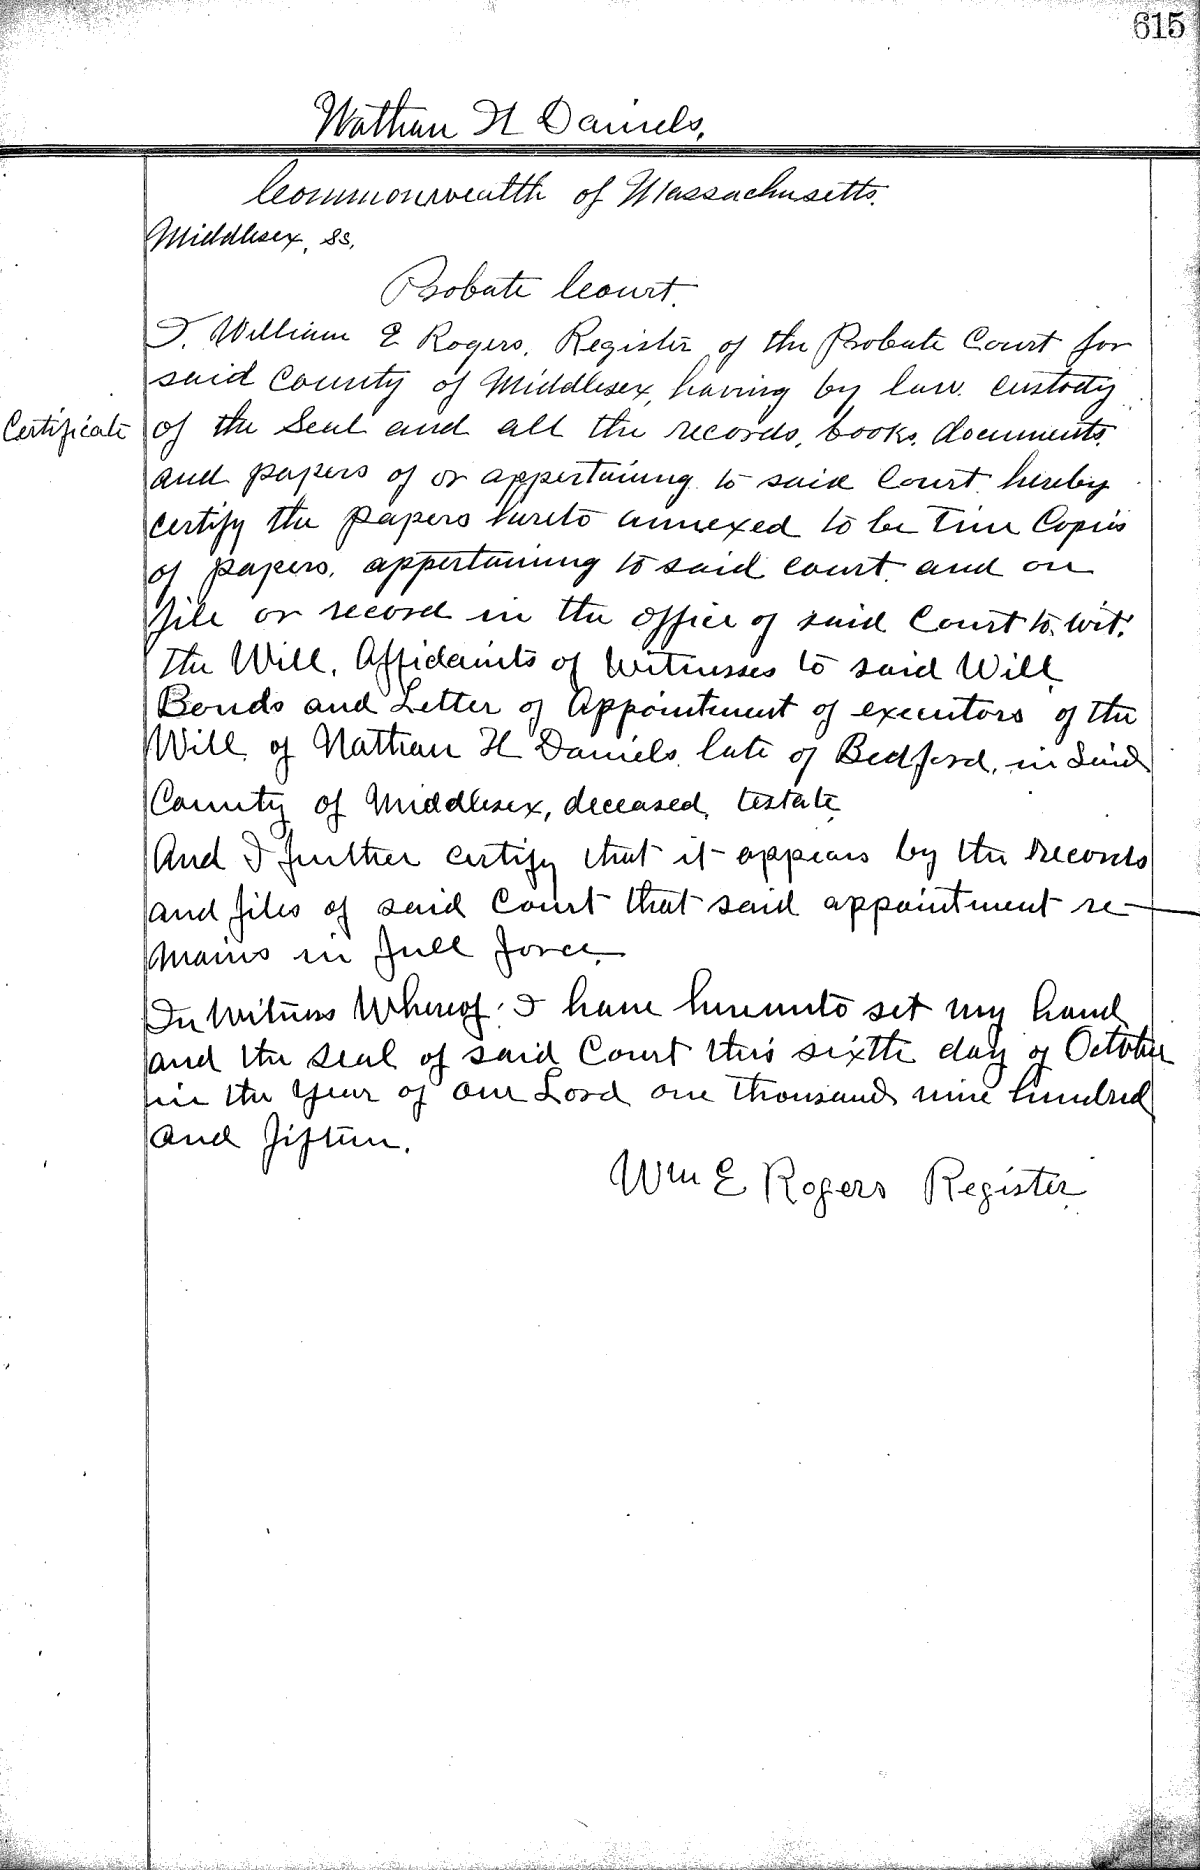 615
Nathan H Daniels,
Commonwealth of Massachusetts.
Middlesex, ss,
Probate Court.
I, William E Rogers, Register of the Probate Court for
said County of Middlesex, having by law, custody
Certificate
of the Seal and all the records, books, documents,
and papers of or appertaining to said Court, hereby
certify the papers hereto annexed to be true Copies
of papers, appertaining to said court, and on
file or record in the office of said Court to, wit:
the Will, Affidavits of Witnesses to said Will,
Bonds and Letter of Appointment of executors of the
Will, of Nathan H Daniels, late of Bedford, in said
County of Middlesex, deceased, testate,
And I further certify that it appears by the records
and files of said Court that said appointment re-
mains in full force.
In Witness Whereof, I have hereunto set my hand
and the seal of said Court this sixth day of October
in the year of our Lord one thousand nine hundred
and fifteen.
Wm E Rogers Register.